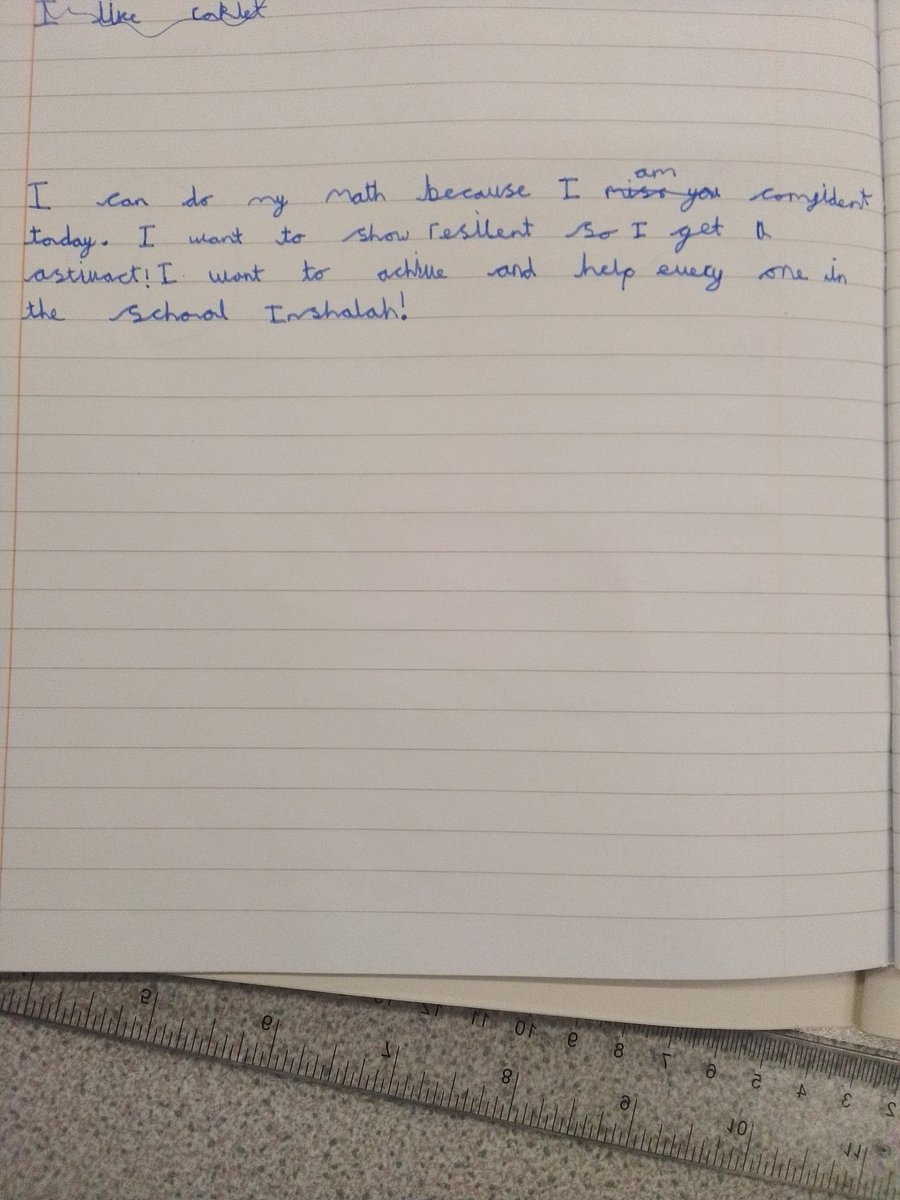 I like coklet
I can do my math because I am miss you comfident
today. I want to show resilent so I get a
astinact! I want to achive and help every one in
the school Inshalah!
9
6
7
8
9
10
11
12 11 10 9 8 7 6 5 4 3 2